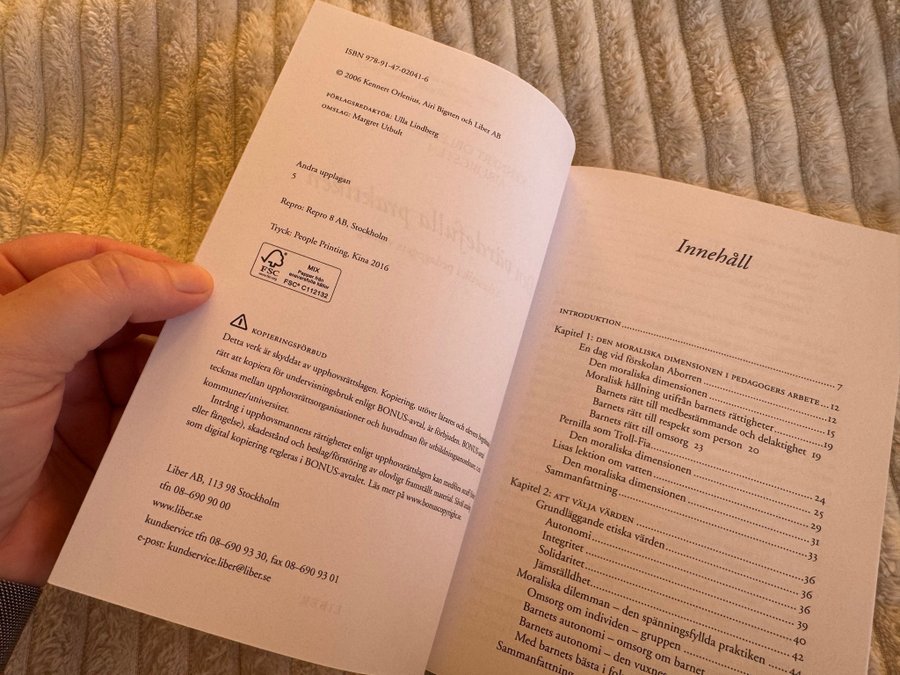 ISBN 978-91-47-02041-6
© 2006 Kennert Orlenius, Airi Bigsten och Liber AB
FÖRLAGSREDAKTÖR: Ulla Lindberg
OMSLAG: Margret Utbult
Andra upplagan
5
Repro: Repro 8 AB, Stockholm
Tryck: People Printing, Kina 2016
FSC
www.fsc.org
MIX
Papper från
ansvarsfulla källor
FSC® C112132
KOPIERINGSFÖRBUD
Detta verk är skyddat av upphovsrättslagen. Kopiering, utöver lärares och elevers begränsade
rätt att kopiera för undervisningsbruk enligt BONUS-avtal, är förbjuden. BONUS-avtal
tecknas mellan upphovsrättsorganisationer och huvudman för utbildningsanordnare
kommuner/universitet.
Intrång i upphovsmannens rättigheter enligt upphovsrättslagen kan medföra straff
eller fängelse), skadestånd och beslag/förstöring av olovligt framställt material. Såväl
som digital kopiering regleras i BONUS-avtalet. Läs mer på www.bonuscopyright.se
Liber AB, 113 98 Stockholm
tfn 08–690 90 00
www.liber.se
kundservice tfn 08–690 93 30, fax 08–690 93 01
e-post: kundservice.liber@liber.se
Innehåll
INTRODUKTION 7
Kapitel 1: DEN MORALISKA DIMENSIONEN I PEDAGOGERS ARBETE 12
En dag vid förskolan Aborren 12
Den moraliska dimensionen 15
Moralisk hållning utifrån barnets rättigheter 19
Barnets rätt till medbestämmande och delaktighet 19
Barnets rätt till respekt som person 20
Barnets rätt till omsorg 23
Pernilla som Troll-Fia 24
Den moraliska dimensionen 25
Lisas lektion om vatten 29
Den moraliska dimensionen 31
Sammanfattning 33
Kapitel 2: ATT VÄLJA VÄRDEN 36
Grundläggande etiska värden 36
Autonomi 36
Integritet 39
Solidaritet 40
Jämställdhet 42
Moraliska dilemman – den spänningsfyllda praktiken 44
Omsorg om individen – gruppen
Barnets autonomi – omsorg om barnet
Barnets autonomi – den vuxnes
Med barnets bästa i
Sammanfattning